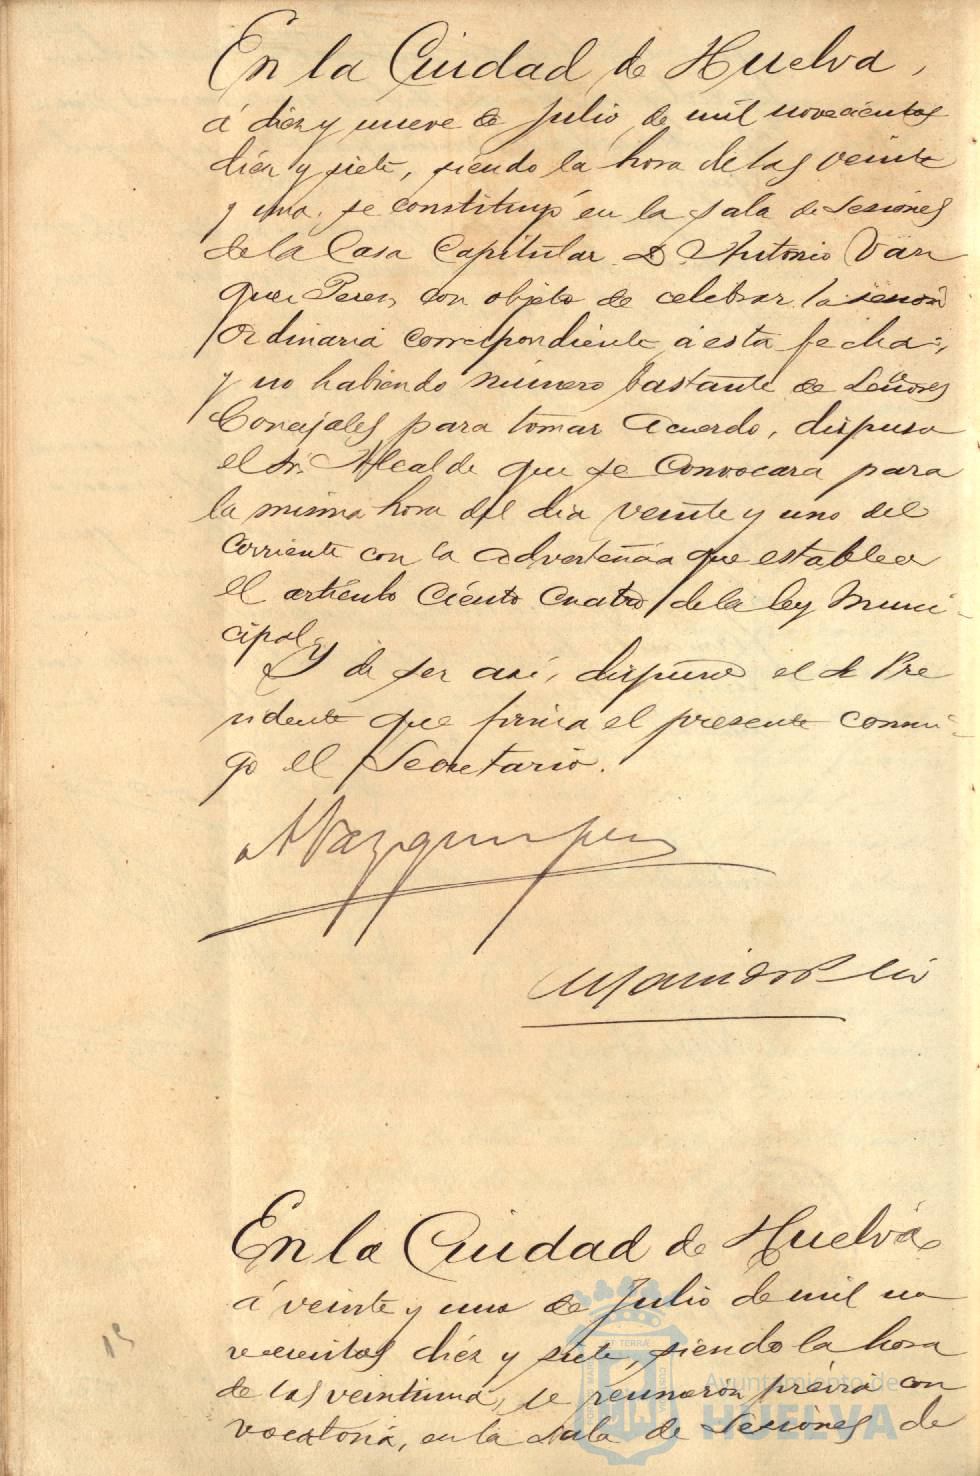 En la Ciudad de Huelva,
á diez y nueve de Julio de mil novecientos
diez y siete, siendo la hora de las veinte
y una, se constituyó en la sala de Sesiones
de la Casa Capitular D. Antonio Váz
quez Perez, con objeto de celebrar la sesion
Ordinaria correspondiente á esta fecha;
y no habiendo número bastante de Señores
Concejales para tomar acuerdo, dispuso
el Sr. Alcalde que se convocara para
la misma hora del dia veinte y uno del
corriente con la advertencia que establece
el artículo ciento cuatro de la ley Muni-
cipal.
Y de ser así, dispuso el Sr Pre
sidente que firma el presente conmi-
go el Secretario.
A Vazquez Perez
En la Ciudad de Huelva
á veinte y uno de Julio de mil no
vecientos diez y siete, siendo la hora
de las veintiuna, se reunieron prévia con
vocatoria, en la Sala de Sesiones de
15
Ayuntamiento de
HUELVA